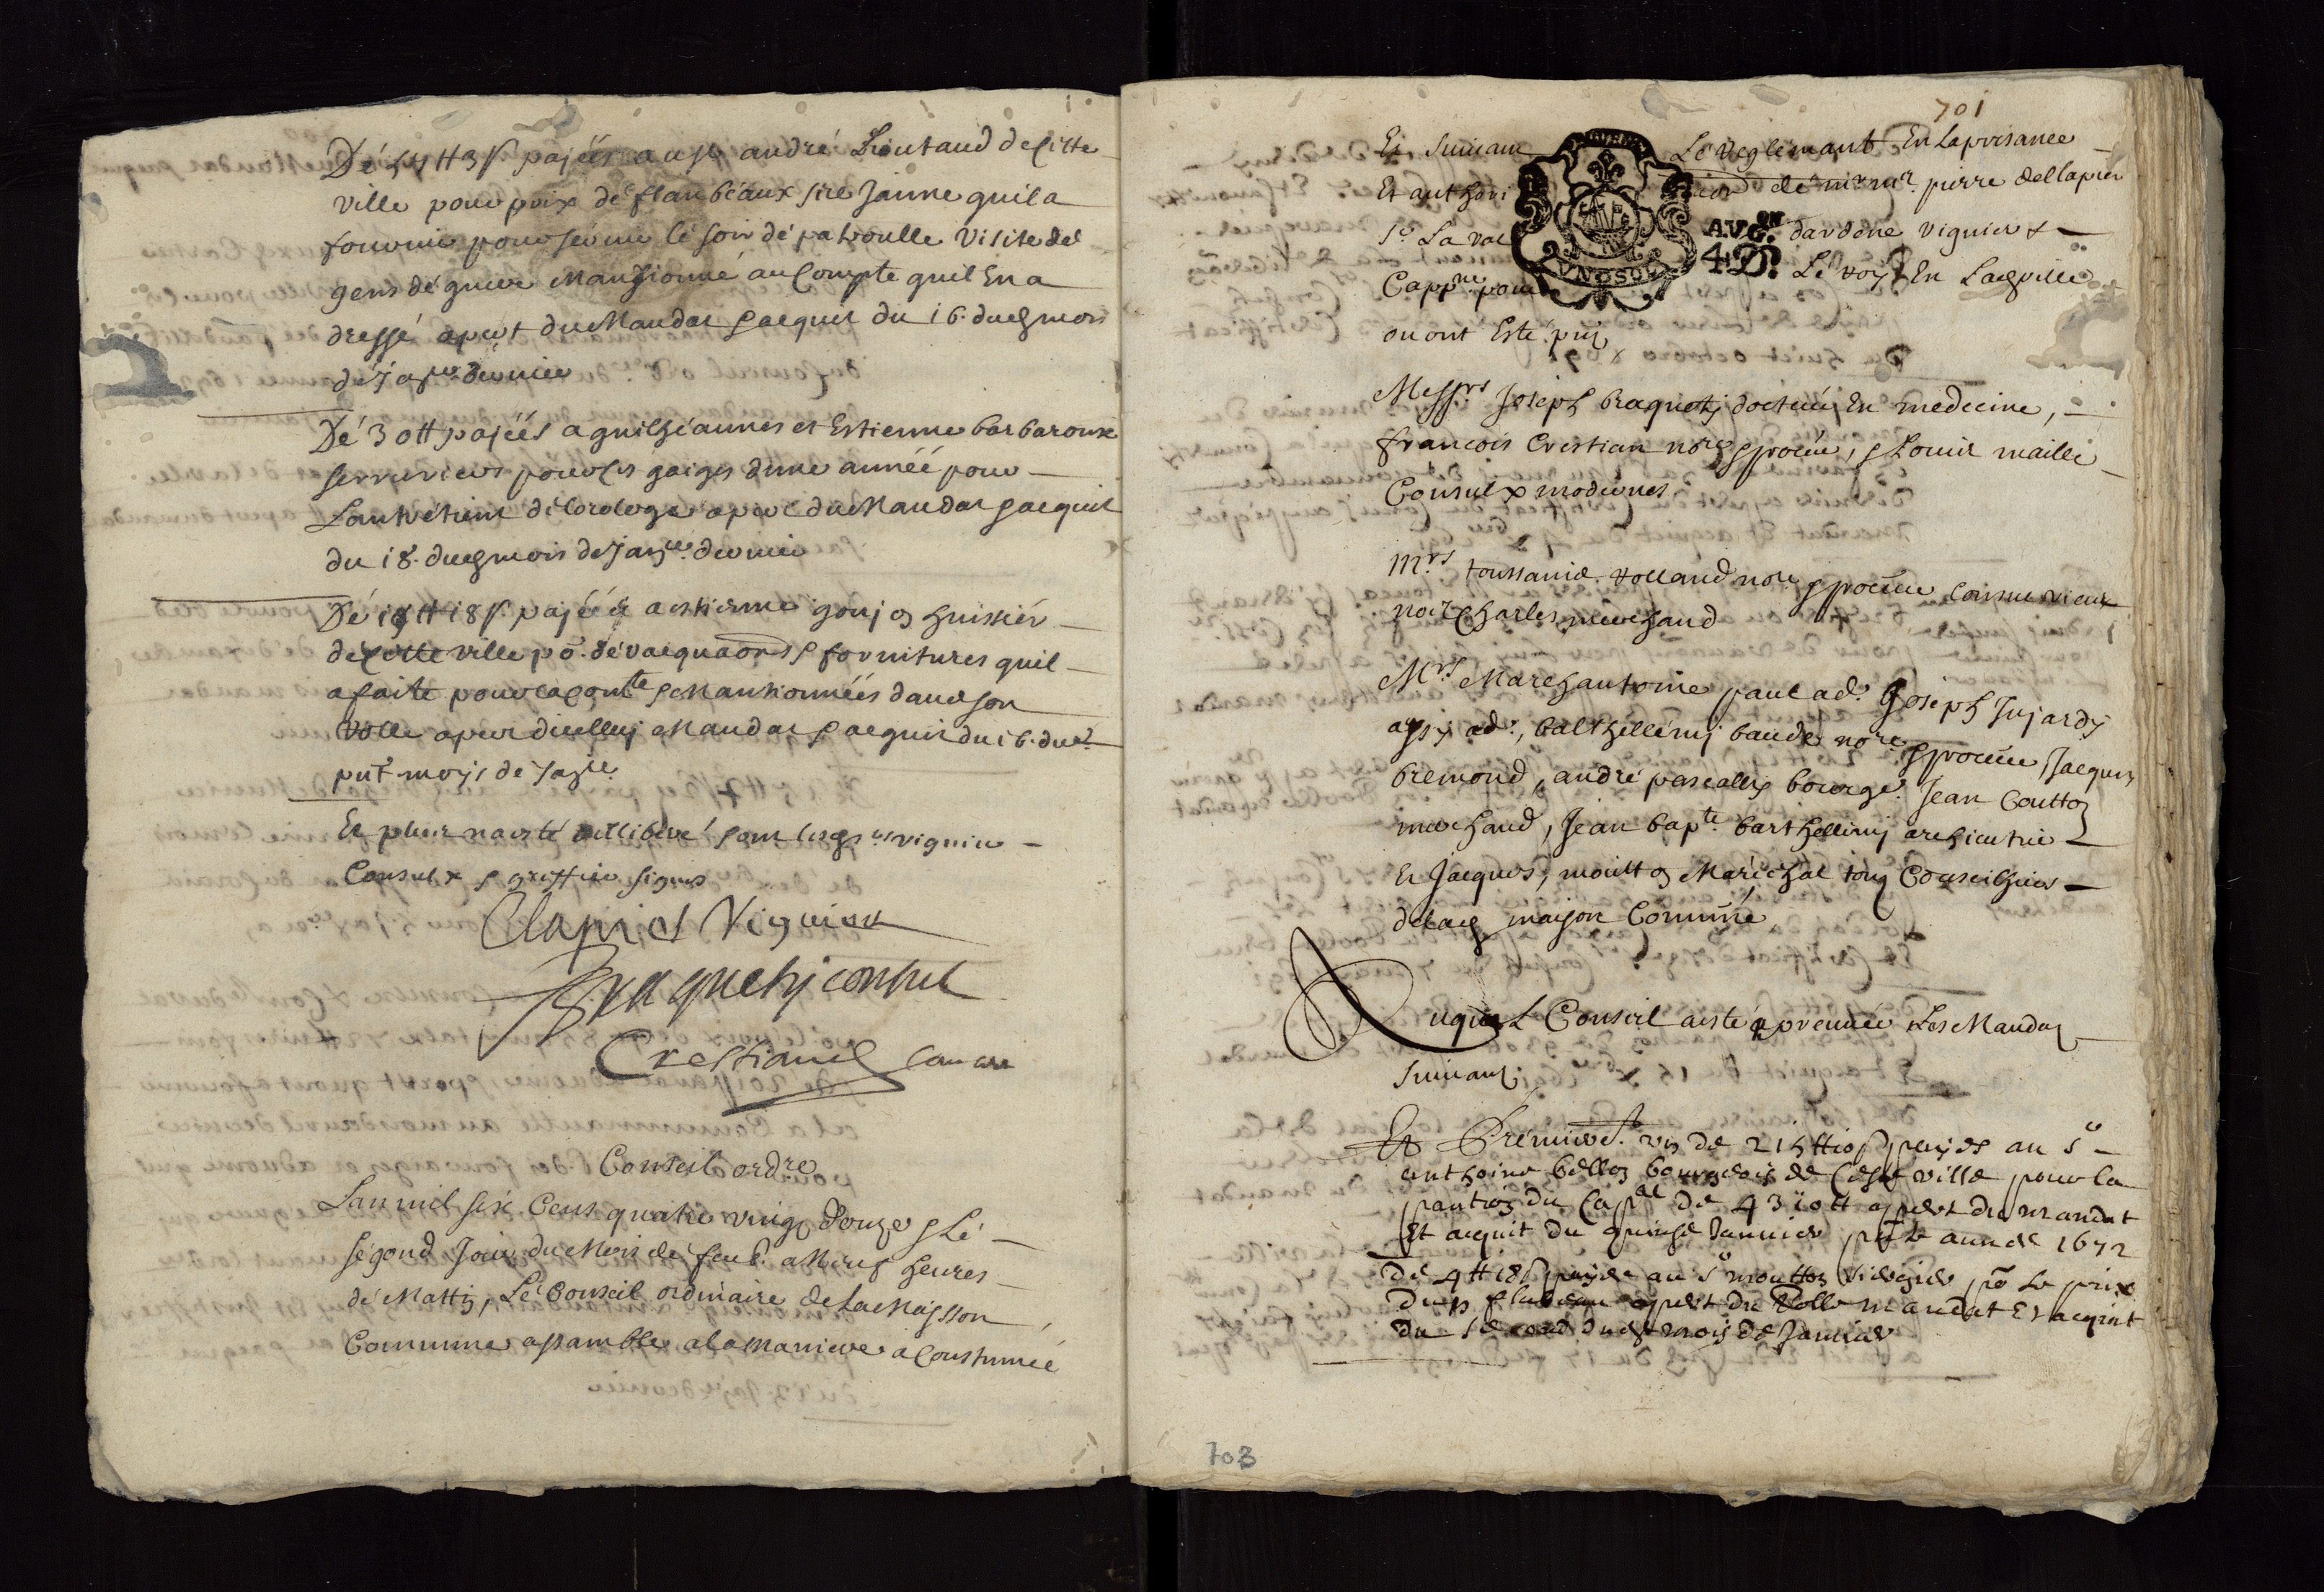 Dé 54 tt 3 s. pajéés au sr. andré Lieutaud de Cette
ville pour prix dé flanbéaux sire Jaune quil a
fourni pour servir lé soir dé patroulle visite des
gens dé guerre Mantionné au Compte quil En a
dressé apert du Mandat & acquit du 16. dud. mois
dé Janer. dernier
Dé 30 tt pajéés a guilhéaumes et Estienne barbaroux
serruriers pour les gaiges dune année pour
Lantretient de lorologe apert du Mandat & acquit
du 18. dud. mois de Janer. dernier
Dé 19 tt 18 s. pajéés a estienne goujon huissiér
de Cette ville po. dé vacquaons & fornitures quil
a faite pour la Comté & Mantionnéés dans son
Rolle apert dicelluy Mandat & acquit du 16. dud.
pnt. moys de Jaer.
Et plus na esté dellibéré & ont lesds. srs viguier
Consulx & greffier signés
Clapiés Viguier
Braquety consul
Crestian Consul
Conseil ordre
Lan mil six Cens quatre vingt Douze & Lé
ségond Jour du Mois de feub. a Neuf heures
dé Mattin, Lé Conseil ordinaire de La Maisson
Commune assamblé a la maniere acoustumée
701
Et suivant Lé Reglemant En La presance
Et authori dé mr. mr. pierre de Clapiér
Sr. La val dardene viguier &
AVGON
4 D.
VNDSOV
Cappne. pour Lé Roy En Lad. ville
ou ont Esté prns
Messrs Joseph braquety docteur En medecine,
francois Crestian nore & procur, & Louis maille
Consulx modernes
Mrs toussaint Rolland nore & procur Consul vieux
noel Charles merchand
Mrs Marc anthoine paul ad. Joseph Jujardy
aussy ad., balthellémy baude nore & procur, Jacques
bremond, andré pascallis bourge. Jean Couttoz
merchand, Jean bapte. barthellémy archicutrie
Et Jacques, mouttoz Maréchal tous Conseilhers
de lad maison Comune
Auquel Conseil a esté aprouvée Les Mandatz
suivantz
Et Prémieret. un de 215 tt 10 s payés au Sr
anthoine bellon bourgeois de Ceste ville pour la
pantion du Capal de 4310 tt apert du mandat
Et acquit du quinse Janvier pnte année 1692
De 4 tt 18 s payés au sr mouttoz po le prix
dun flabeau apert du Rolle mandat Et acquit
du segond dud. mois de Janvier
703